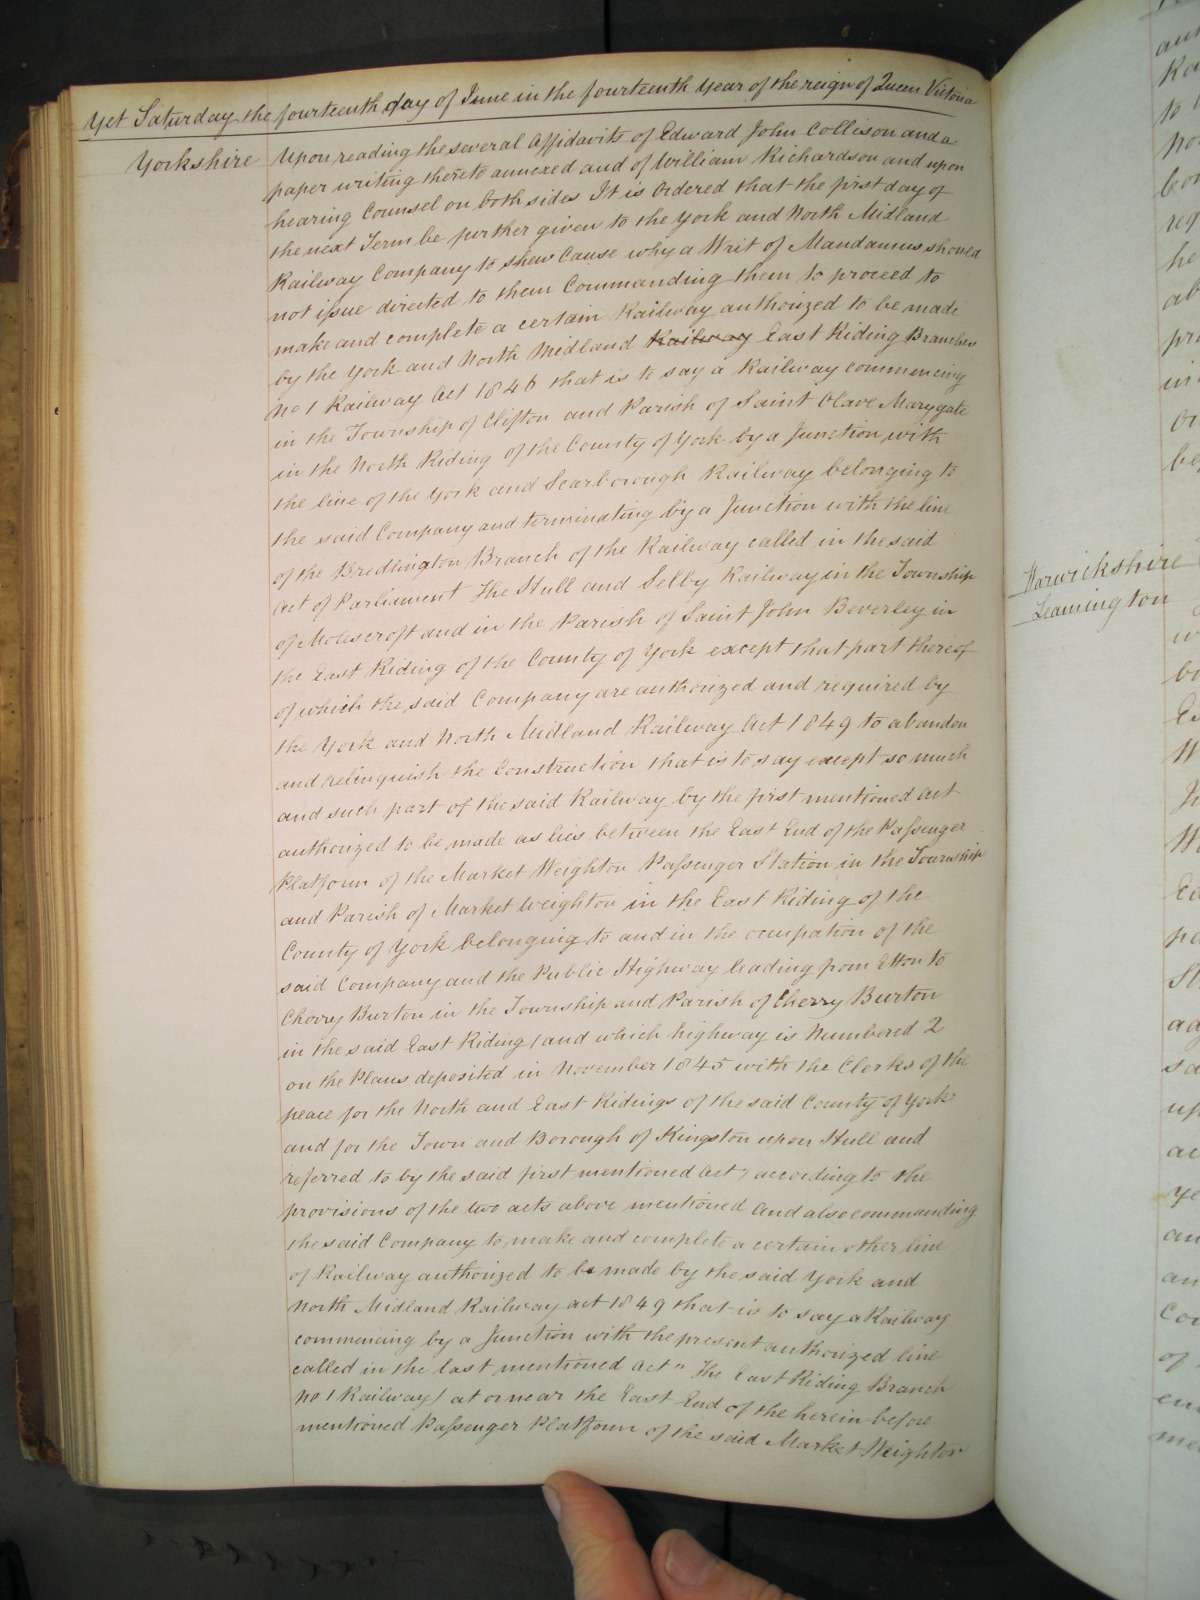 Yet Saturday the fourteenth day of June in the fourteenth Year of the reign of Queen Victoria
Yorkshire Upon reading the several Affidavits of Edward John Collison and a
paper writing thereto annexed and of William Richardson and upon
hearing Counsel on both sides It is Ordered that the first day of
the next Term be further given to the York and North Midland
Railway Company to shew Cause why a Writ of Mandamus should
not issue directed to them Commanding them to proceed to
make and complete a certain Railway authorized to be made
by the York and North Midland Railway East Riding Branches
No 1 Railway Act 1846 that is to say a Railway commencing
in the Township of Clifton and Parish of Saint Olave Marygate
in the North Riding of the County of York by a Junction with
the line of the York and Scarborough Railway belonging to
the said Company and terminating by a Junction with the line
of the Bredlington Branch of the Railway called in the said
Act of Parliament The Hull and Selby Railway in the Township
of Molescroft and in the Parish of Saint John Beverley in
the East Riding of the County of York except that part thereof
of which the said Company are authorized and required by
the York and North Midland Railway Act 1849 to abandon
and relinquish the Construction that is to say except so much
and such part of the said Railway by the first mentioned Act
authorized to be made as lies between the East End of the Passenger
Platform of the Market Weighton Passenger Station in the Township
and Parish of Market Weighton in the East Riding of the
County of York belonging to and in the occupation of the
said Company and the Public Highway leading from Etton to
Cherry Burton in the Township and Parish of Cherry Burton
in the said East Riding (and which highway is Numbered 2
on the Plans deposited in November 1845 with the Clerks of the
peace for the North and East Ridings of the said County of York
and for the Town and Borough of Kingston upon Hull and
referred to by the said first mentioned Act) according to the
provisions of the two acts above mentioned And also commanding
the said Company to make and complete a certain other line
of Railway authorized to be made by the said York and
North Midland Railway Act 1849 that is to say a Railway
commencing by a Junction with the present authorized line
called in the last mentioned Act "The East Riding Branch
No 1 Railway) at or near the East End of the herein before
mentioned Passenger Platform of the said Market Weighton
Warwickshire
Leamington